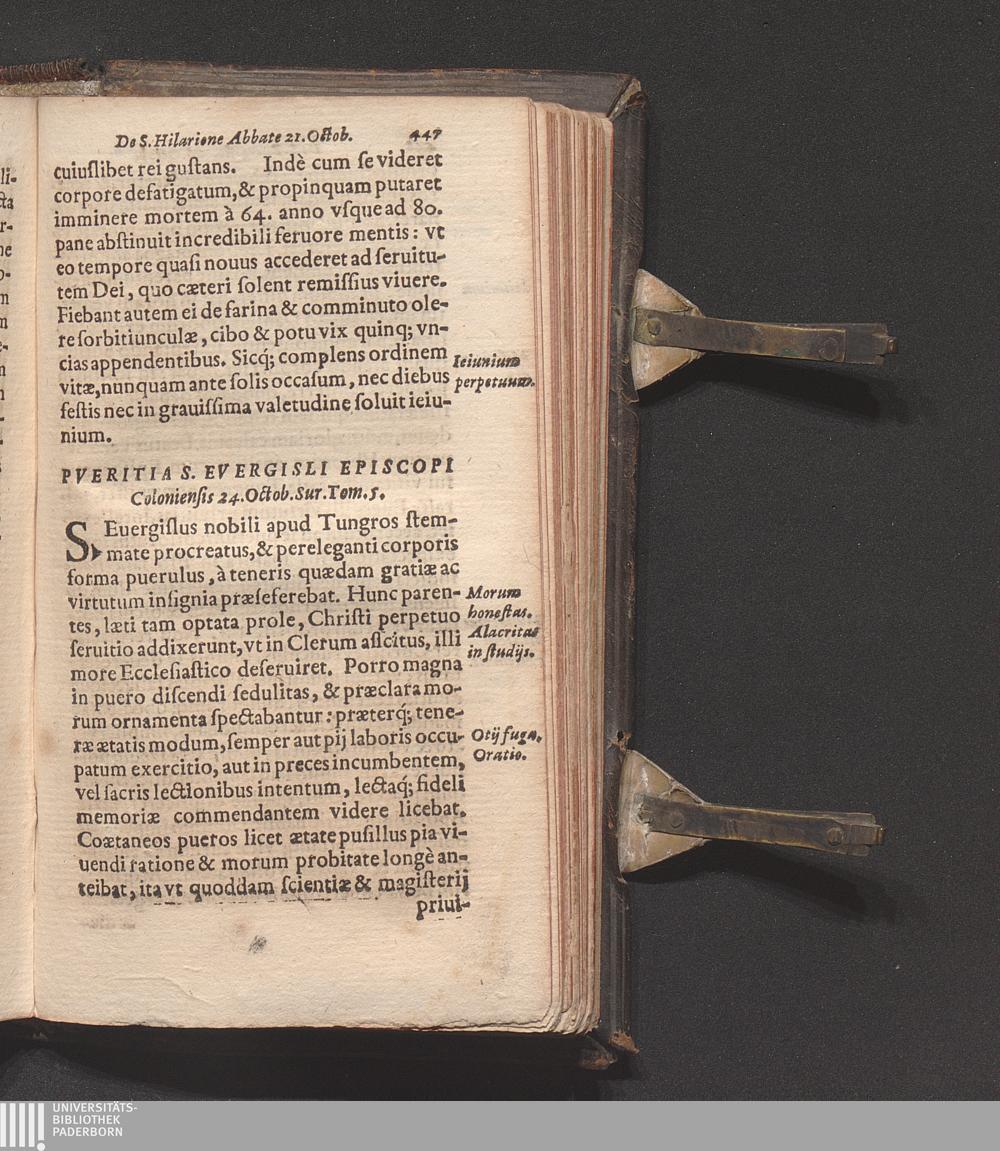 De S. Hilarione Abbate 21. Octob. 447
cuiuſlibet rei guſtans. Indè cum ſe videret
corpore defatigatum, & propinquam putaret
imminere mortem à 64. anno vſque ad 80.
pane abſtinuit incredibili feruore mentis: vt
eo tempore quaſi nouus accederet ad ſeruitu-
tem Dei, quo cæteri ſolent remiſſius viuere.
Fiebant autem ei de farina & comminuto ole-
re ſorbitiunculæ, cibo & potu vix quinq; vn-
cias appendentibus. Sicq́; complens ordinem
vitæ, nunquam ante ſolis occaſum, nec diebus
feſtis nec in grauiſſima valetudine ſoluit ieiu-
nium.
Ieiunium
perpetuum.
PVERITIA S. EVERGISLI EPISCOPI
Colonienſis 24. Octob. Sur. Tom. 5.
S. Euergiſlus nobili apud Tungros ſtem-
mate procreatus, & pereleganti corporis
forma puerulus, à teneris quædam gratiæ ac
virtutum inſignia præſeferebat. Hunc paren-
tes, læti tam optata prole, Chriſti perpetuo
ſeruitio addixerunt, vt in Clerum aſcitus, illi
more Eccleſiaſtico deſeruiret. Porro magna
in puero diſcendi ſedulitas, & præclara mo-
rum ornamenta ſpectabantur: præterq́; tene-
ræ ætatis modum, ſemper aut pij laboris occu-
patum exercitio, aut in preces incumbentem,
vel ſacris lectionibus intentum, lectaq́; fideli
memoriæ commendantem videre licebat.
Coætaneos pueros licet ætate puſillus pia vi-
uendi ratione & morum probitate longè an-
teibat, ita vt quoddam ſcientiæ & magiſterij
priui-
Morum
honeſtas.
Alacritas
in ſtudijs.
Otij fuga.
Oratio.
li-
cta
r-
ne
o-
m
n
UNIVERSITÄTS-
BIBLIOTHEK
PADERBORN